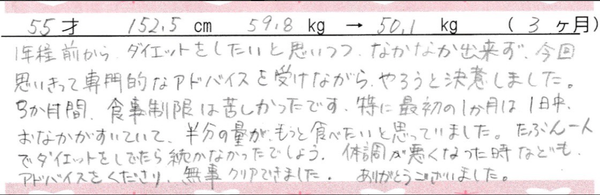 55才 152.5 cm 59.8 kg → 50.1 kg (3ヶ月)
1年程前から、ダイエットをしたいと思いつつ、なかなか出来ず、今回
思いきって専門的なアドバイスを受けながら、やろうと決意しました。
3か月間、食事制限は苦しかったです。特に最初の1か月は1日中、
おなかがすいていて、半分の量が、もっと食べたいと思っていました。たぶん一人
でダイエットをしてたら続かなかったでしょう。体調が悪くなった時なども、
アドバイスをくださり、無事クリアできました。ありがとうございました。